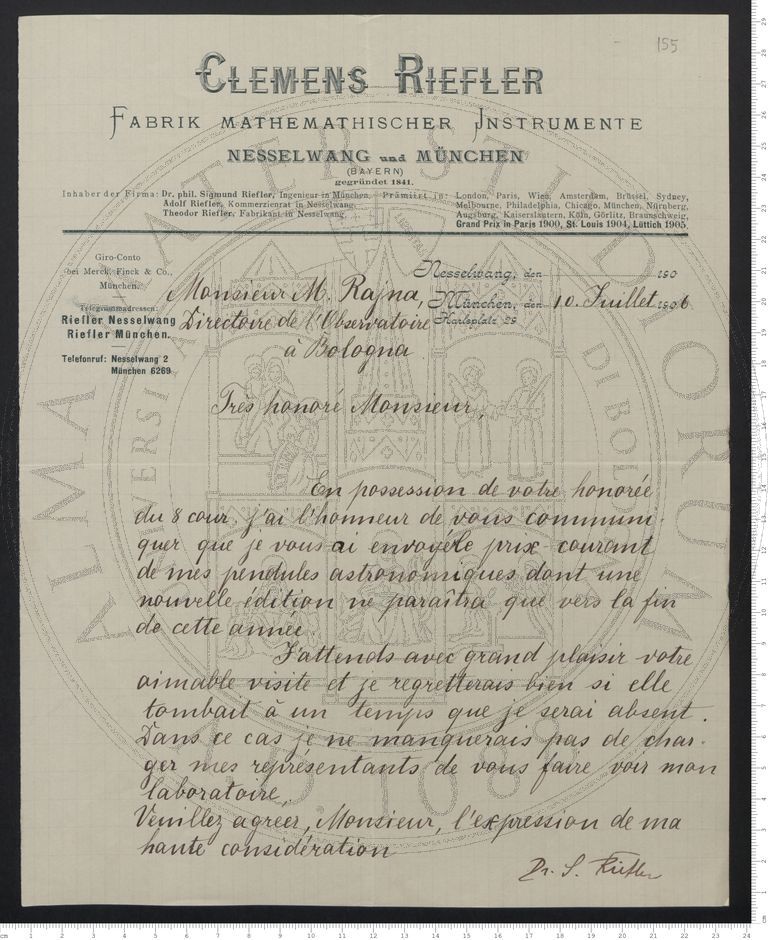 155
CLEMENS RIEFLER
FABRIK MATHEMATHISCHER INSTRUMENTE
NESSELWANG und MÜNCHEN
(BAYERN)
gegründet 1841.
Inhaber der Firma: Dr. phil. Sigmund Riefler, Ingenieur in München,
Adolf Riefler, Kommerzienrat in Nesselwang,
Theodor Riefler, Fabrikant in Nesselwang.
Prämiirt in: London, Paris, Wien, Amsterdam, Brüssel, Sydney,
Melbourne, Philadelphia, Chicago, München, Nürnberg,
Augsburg, Kaiserslautern, Köln, Görlitz, Braunschweig,
Grand Prix in Paris 1900, St. Louis 1904, Lüttich 1905.
Giro-Conto
bei Merck, Finck & Co.,
München.
Telegrammadressen:
Riefler Nesselwang
Riefler München.
Telefonruf: Nesselwang 2
München 6269
Nesselwang, den 190
München, den 10. Juillet 1906
Karlsplatz 29
Monsieur M. Rajna,
Directoire de l'Observatoire
à Bologna.
Très honoré Monsieur,
En possession de votre honorée
du 8 cour. j'ai l'honneur de vous communi-
quer que je vous ai envoyé le prix-courant
de mes pendules astronomiques dont une
nouvelle édition ne paraîtra que vers la fin
de cette année.
J'attends avec grand plaisir votre
aimable visite et je regretterais bien si elle
tombait à un temps que je serai absent.
Dans ce cas je ne manquerais pas de char-
ger mes représentants de vous faire voir mon
laboratoire.
Veuillez agréer, Monsieur, l'expression de ma
haute considération
Dr. S. Riefler
ALMA MATER STUDIORUM